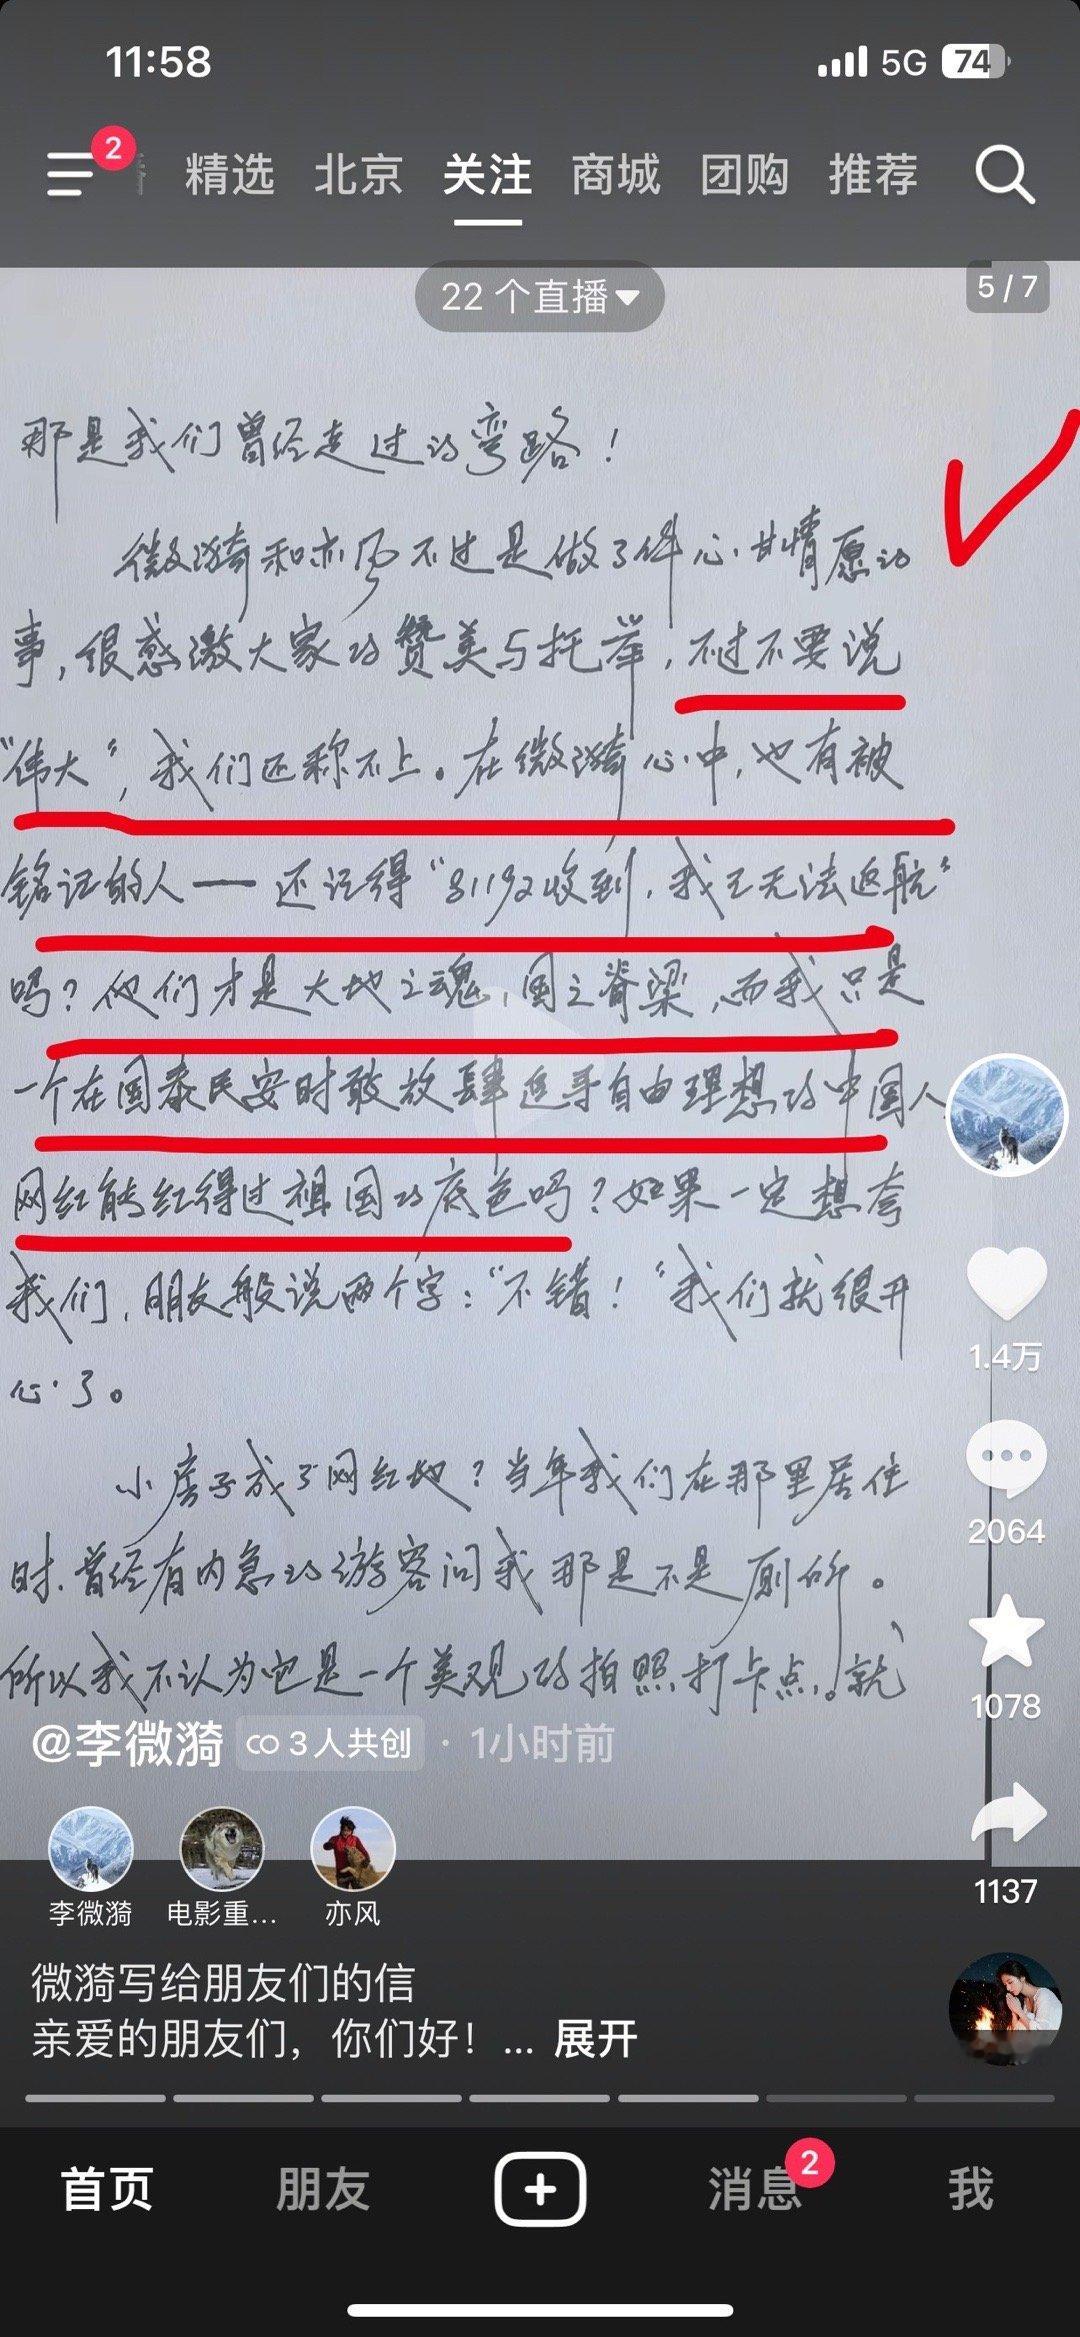 11:58
5G 74
2
精选 北京 关注 商城 团购 推荐
22 个直播
5/7
那是我们曾经走过的弯路！
微漪和亦风不过是做了件心甘情愿的
事，很感激大家的赞美与托举，不过不要说
“伟大”，我们还称不上。在微漪心中，也有被
铭记的人——还记得“81192收到，我已无法返航”
吗？他们才是大地之魂，国之脊梁，而我只是
一个在国泰民安时敢放肆追寻自由理想的中国人，
网红能红得过祖国的底色吗？如果一定想夸
我们，朋友般说两个字：“不错！”我们就很开
心了。
小房子成了网红地？当年我们在那里居住
时，曾经有内急的游客问我那是不是厕所。
所以我不认为它是一个美观的拍照打卡点。就
1.4万
2064
1078
1137
@李微漪 3人共创 · 1小时前
李微漪 电影重... 亦风
微漪写给朋友们的信
亲爱的朋友们，你们好！... 展开
首页 朋友 消息 2 我